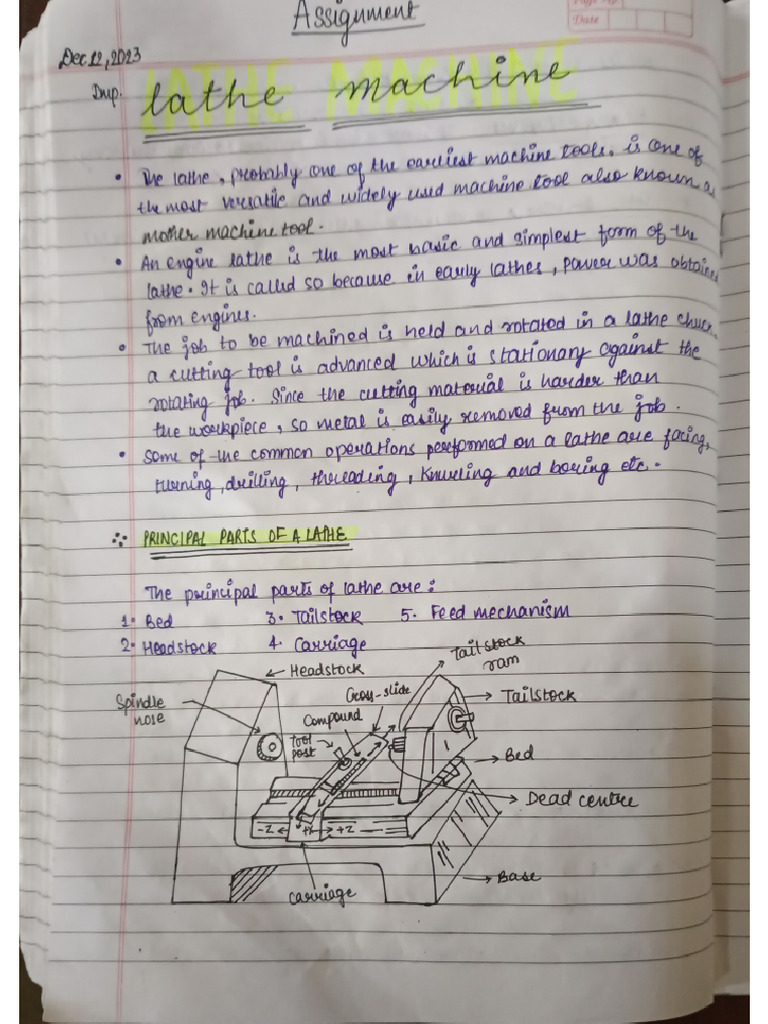 Assignment
Page No.
Date
Dec 12, 2023
Imp.
lathe machine
LATHE MACHINE
• The lathe, probably one of the earliest machine tools, is one of
the most versatile and widely used machine tool also known as
mother machine tool.
• An engine lathe is the most basic and simplest form of the
lathe. It is called so because in early lathes, power was obtained
from engines.
• The job to be machined is held and rotated in a lathe chuck.
a cutting tool is advanced which is stationary against the
rotating job. Since the cutting material is harder than
the workpiece, so metal is easily removed from the job.
• Some of the common operations performed on a lathe are facing,
turning, drilling, threading, Knurling and boring etc.
PRINCIPAL PARTS OF A LATHE
The principal parts of lathe are:
1. Bed 3. Tailstock 5. Feed mechanism
2. Headstock 4. Carriage
Tailstock
ram
Headstock
Cross-slide
Tailstock
Spindle
nose
Compound
Tool
post
Bed
Dead centre
-Z +X +Z
Base
Carriage